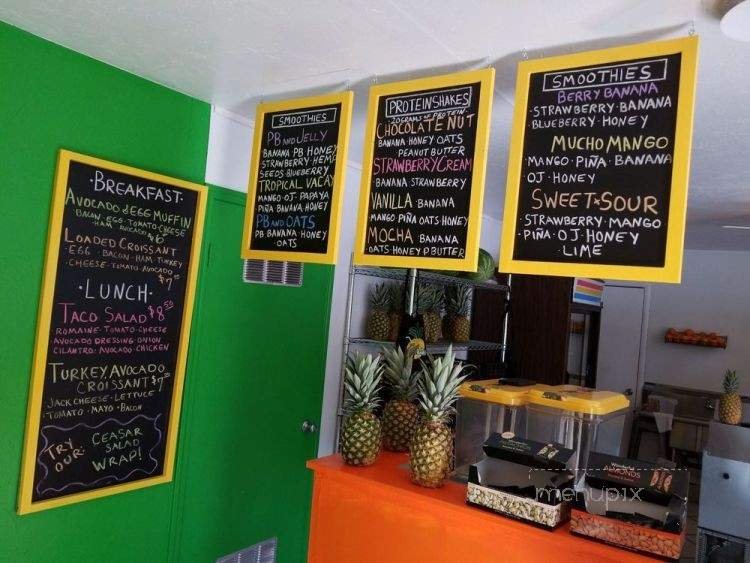 BREAKFAST
AVOCADO & EGG MUFFIN
BACON EGG TOMATO CHEESE
HAM AVOCADO $6
LOADED CROISSANT
EGG BACON HAM TURKEY
CHEESE TOMATO AVOCADO
LUNCH
TACO SALAD $8
ROMAINE TOMATO CHEESE
AVOCADO DRESSING ONION
CILANTRO AVOCADO CHICKEN
TURKEY AVOCADO
CROISSANT $7
JACK CHEESE LETTUCE
TOMATO MAYO BACON
TRY OUR: CEASAR
SALAD
WRAP!
SMOOTHIES
PB AND JELLY
BANANA PB HONEY
STRAWBERRY HEMP
SEEDS BLUEBERRY
TROPICAL VACAY
MANGO OJ PAPAYA
PIÑA BANANA HONEY
PB AND OATS
PB BANANA HONEY
OATS
PROTEIN SHAKES
20GRAMS OF PROTEIN
CHOCOLATE NUT
BANANA HONEY OATS
PEANUT BUTTER
STRAWBERRY CREAM
BANANA STRAWBERRY
VANILLA BANANA
MANGO PIÑA OATS HONEY
MOCHA BANANA
OATS HONEY P BUTTER
SMOOTHIES
BERRY BANANA
STRAWBERRY BANANA
BLUEBERRY HONEY
MUCHO MANGO
MANGO PIÑA BANANA
OJ HONEY
SWEET & SOUR
STRAWBERRY MANGO
PIÑA OJ HONEY
LIME
ALMONDS
menupix